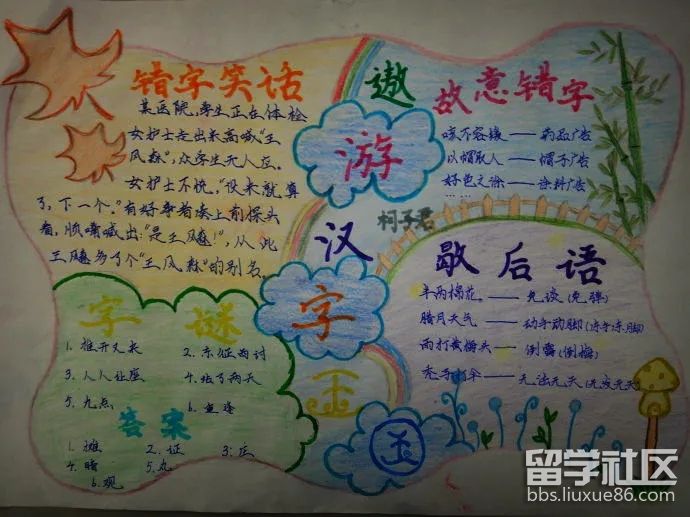 错字笑话
某医院,学生正在体检
女护士走出来高喊"王
风森",众学生无人应。
女护士不悦,"没来就算
了,下一个。"有好事者凑上前探头
看,顺嘴喊出:"是王飚!",从此
王飚多了个"王风森"的别名。
遨
游
汉
字
王
国
柯子君
故意错字
咳不容缓——药品广告
以帽取人——帽子广告
好色之涂——涂料广告
……
歇后语
半两棉花——免谈(免弹)
腊月天气——动手动脚(冻手冻脚)
雨打黄梅头——倒霉(倒梅)
秃子打伞——无法无天(无发无天)
字谜
1. 推开又来
2. 东征西讨
3. 人人让座
5. 九点
答案
1. 摊
2. 证
3. 庄
4. 暗
5. 丸
6. 观
留学社区
bbs.liuxue86.com